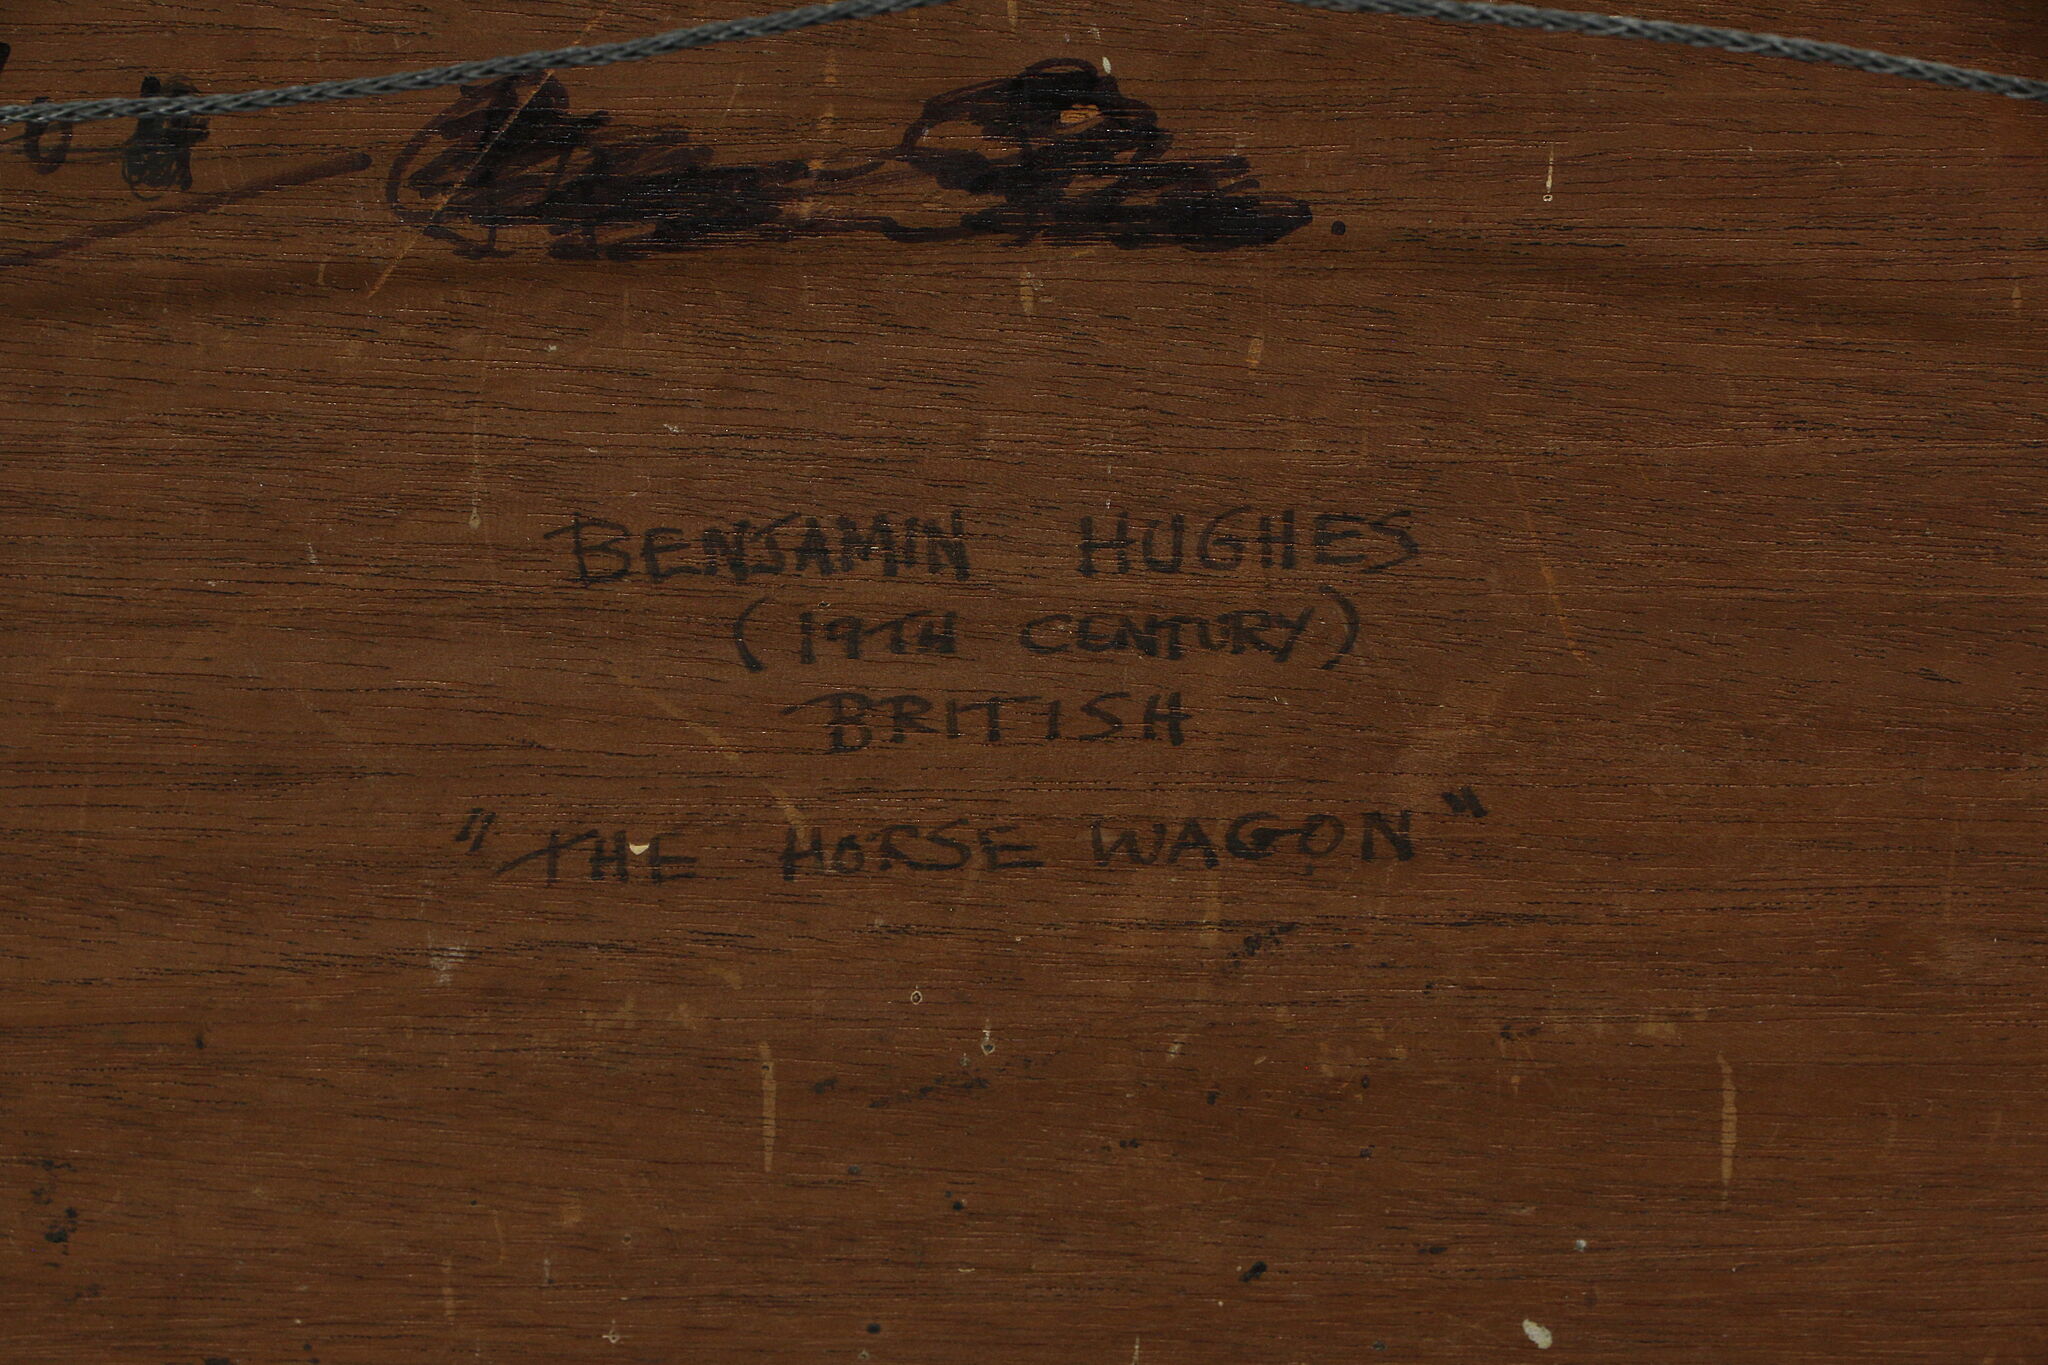 BENJAMIN HUGHES
(19TH CENTURY)
BRITISH
"THE HORSE WAGON"